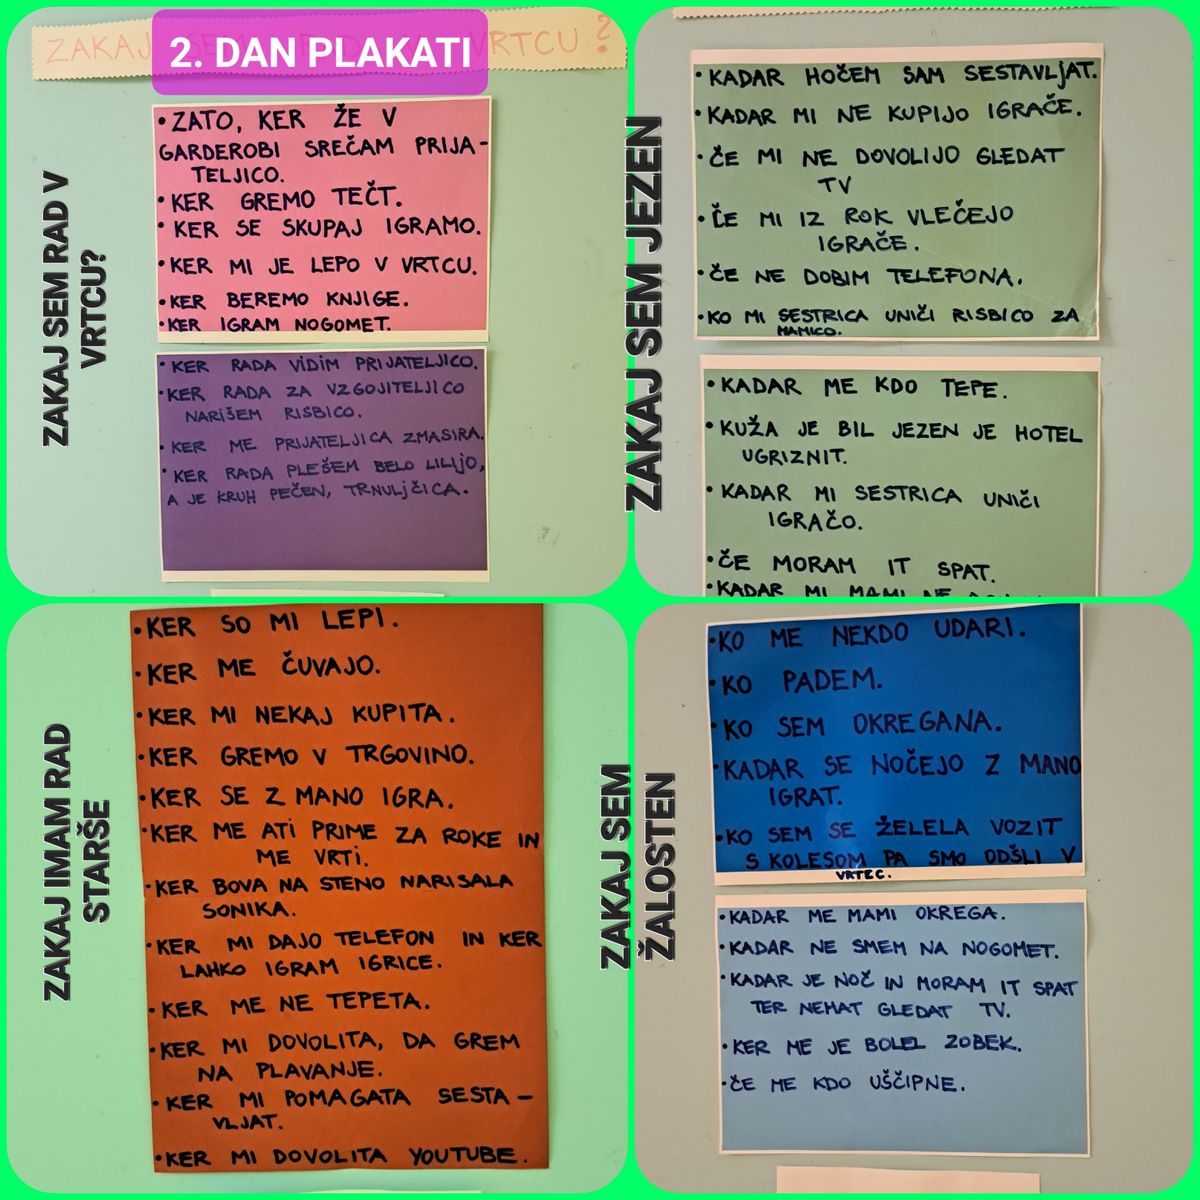 ZAKAJ SEM RAD V VRTCU?
2. DAN PLAKATI
ZAKAJ SEM RAD V
VRTCU?
• ZATO, KER ŽE V
GARDEROBI SREČAM PRIJA-
TELJICO.
• KER GREMO TEČT.
• KER SE SKUPAJ IGRAMO.
• KER MI JE LEPO V VRTCU.
• KER BEREMO KNJIGE.
• KER IGRAM NOGOMET.
• KER RADA VIDIM PRIJATELJICO.
• KER RADA ZA VZGOJITELJICO
NARIŠEM RISBICO.
• KER ME PRIJATELJICA ZMASIRA.
• KER RADA PLEŠEM BELO LILIJO,
A JE KRUH PEČEN, TRNULJČICA.
ZAKAJ SEM JEZEN
• KADAR HOČEM SAM SESTAVLJAT.
• KADAR MI NE KUPIJO IGRAČE.
• ČE MI NE DOVOLIJO GLEDAT
TV
• ČE MI IZ ROK VLEČEJO
IGRAČE.
• ČE NE DOBIM TELEFONA.
• KO MI SESTRICA UNIČI RISBICO ZA
MAMICO.
• KADAR ME KDO TEPE.
• KUŽA JE BIL JEZEN JE HOTEL
UGRIZNIT.
• KADAR MI SESTRICA UNIČI
IGRAČO.
• ČE MORAM IT SPAT.
• KADAR MI MAMI NE
ZAKAJ IMAM RAD
STARŠE
• KER SO MI LEPI.
• KER ME ČUVAJO.
• KER MI NEKAJ KUPITA.
• KER GREMO V TRGOVINO.
• KER SE Z MANO IGRA.
• KER ME ATI PRIME ZA ROKE IN
ME VRTI.
• KER BOVA NA STENO NARISALA
SONIKA.
• KER MI DAJO TELEFON IN KER
LAHKO IGRAM IGRICE.
• KER ME NE TEPETA.
• KER MI DOVOLITA, DA GREM
NA PLAVANJE.
• KER MI POMAGATA SESTA-
VLJAT.
• KER MI DOVOLITA YOUTUBE.
ZAKAJ SEM
ŽALOSTEN
• KO ME NEKDO UDARI.
• KO PADEM.
• KO SEM OKREGANA.
• KADAR SE NOČEJO Z MANO
IGRAT.
• KO SEM SE ŽELELA VOZIT
S KOLESOM PA SMO ODŠLI V
VRTEC.
• KADAR ME MAMI OKREGA.
• KADAR NE SMEM NA NOGOMET.
• KADAR JE NOČ IN MORAM IT SPAT
TER NEHAT GLEDAT TV.
• KER ME JE BOLEL ZOBEK.
• ČE ME KDO UŠČIPNE.